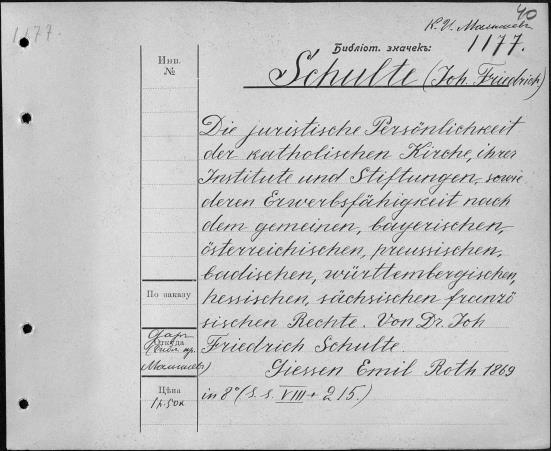 40
К. И. Малышев
1177.
1177.
Библіот. значекъ:
Инв.
№
Schulte (Joh. Friedrich)
Die juristische Persönlichkeit
der katholischen Kirche, ihrer
Institute und Stiftungen, sowie
deren Erwerbsfähigkeit nach
dem gemeinen, bayerischen,
österreichischen, preussischen,
badischen, württembergischen,
hessischen, sächsischen franzö
sischen Rechte. Von Dr. Joh
Friedrich Schulte
Giessen Emil Roth 1869
in 8° (S. s. VIII + 215.)
По заказу
Даръ
Откуда
Малышев)
Цѣна
1 р. 50к